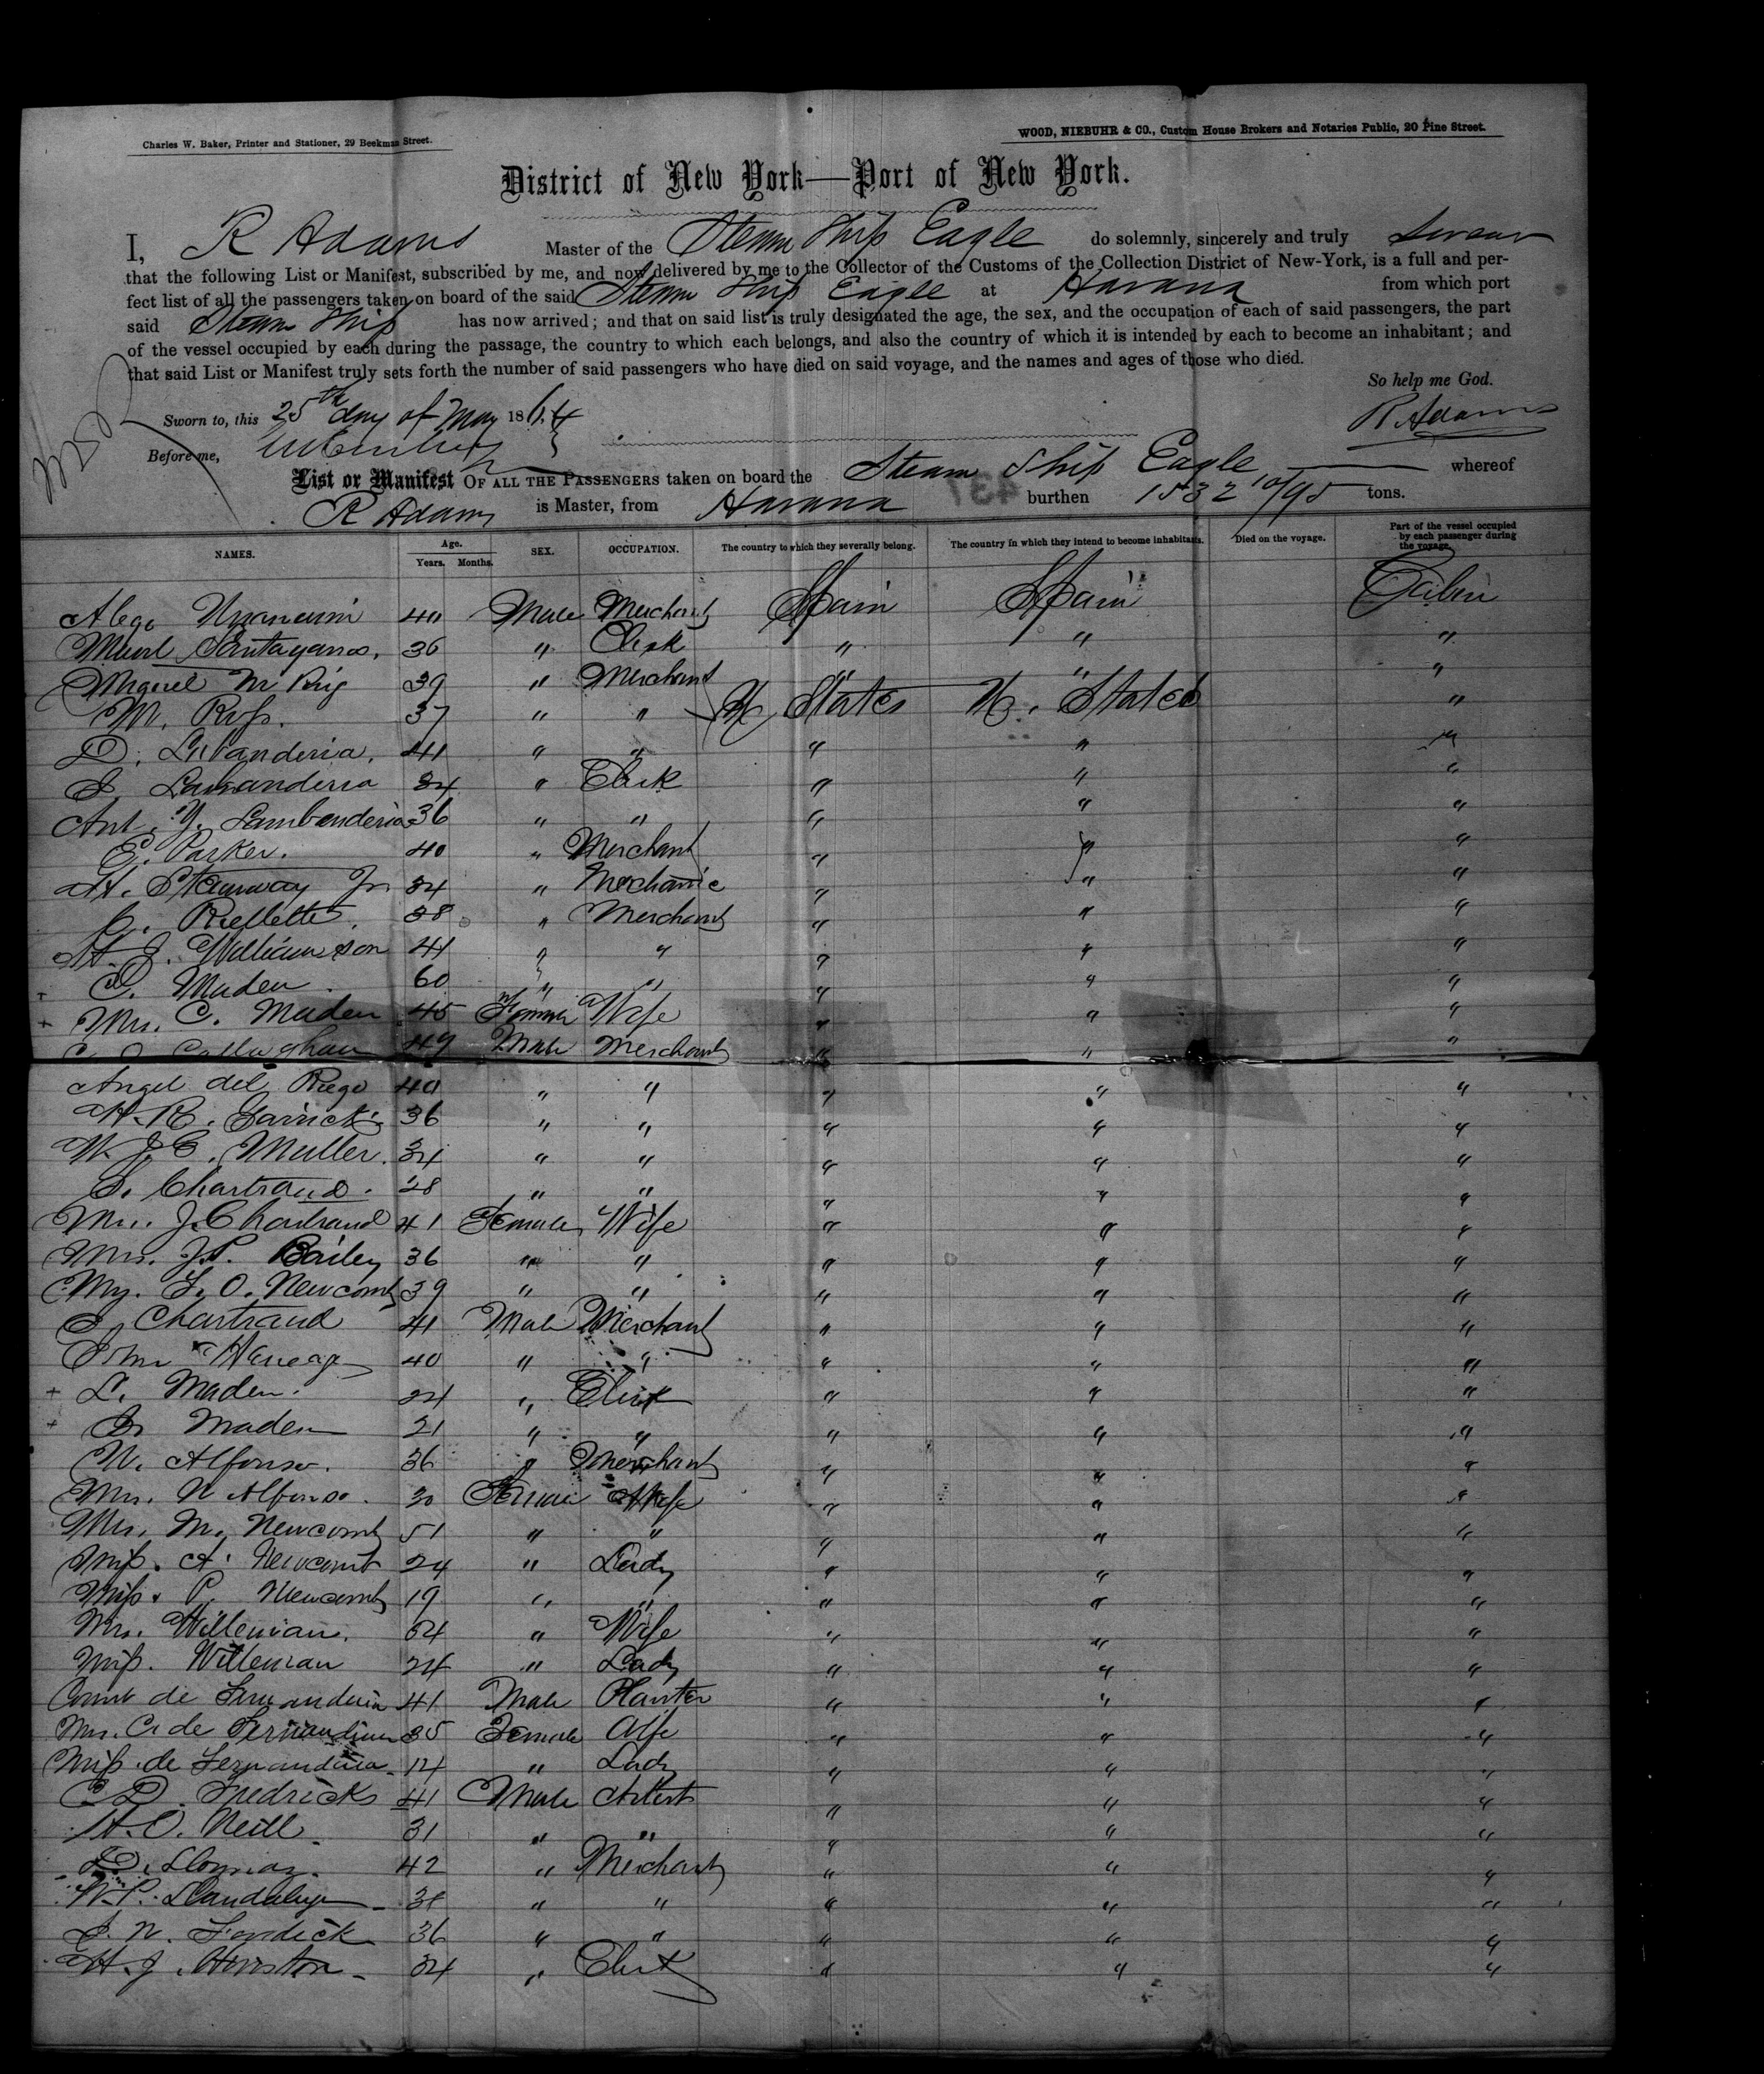 Charles W. Baker, Printer and Stationer, 29 Beekman Street.
WOOD, NIEBUHR & CO., Custom House Brokers and Notaries Public, 20 Pine Street.
District of New York—Port of New York.
I, R Adams Master of the Steam Ship Eagle do solemnly, sincerely and truly swear
that the following List or Manifest, subscribed by me, and now delivered by me to the Collector of the Customs of the Collection District of New-York, is a full and per-
fect list of all the passengers taken on board of the said Steam Ship Eagle at Havana from which port
said Steam Ship has now arrived; and that on said list is truly designated the age, the sex, and the occupation of each of said passengers, the part
of the vessel occupied by each during the passage, the country to which each belongs, and also the country of which it is intended by each to become an inhabitant; and
that said List or Manifest truly sets forth the number of said passengers who have died on said voyage, and the names and ages of those who died.
So help me God.
Sworn to, this 25th day of May 1864
R Adams
Before me,
List or Manifest OF ALL THE PASSENGERS taken on board the Steam Ship Eagle whereof
R Adams is Master, from Havana burthen 1532 10/95 tons.
NAMES. Age. Years. Months. SEX. OCCUPATION. The country to which they severally belong. The country in which they intend to become inhabitants. Died on the voyage. Part of the vessel occupied by each passenger during the voyage.
40 Male Merchant Spain Spain Cabin
36 " Clerk " " "
Miguel 39 " Merchant " " "
M. Ross. 37 " " U States U. States "
D. 41 " " " " "
34 " Clerk " " "
Ant. Y. 36 " " " " "
E. Parker. 40 " Merchant " " "
H. Steinway Jr 34 " Mechanic " " "
38 " Merchant " " "
H. J. Williamson 41 " " " " "
+ C. Maden 60 " " " " "
+ Mrs. C. Maden 45 Female Wife " " "
C. O Callaghan 49 Male Merchant " " "
Angel del Riego 40 " " " " "
H. R. 36 " " " " "
W. J. C. Muller. 34 " " " " "
S. Chartrand. 28 " " " " "
Mrs. J. Chartrand 41 Female Wife " " "
Mrs. J. P. Bailey 36 " " " " "
F. O. Newcomb 39 " " " " "
Chartrand 41 Male Merchant " " "
John 40 " " " " "
+ L. Maden. 24 " Clerk " " "
+ Maden 21 " " " " "
N. Alfonso. 36 " Merchant " " "
Mrs. N Alfonso. 30 Female Wife " " "
Mrs. M. Newcomb 51 " " " " "
Miss. A. Newcomb 24 " Lady " " "
Miss. P. Newcomb 19 " " " " "
Mrs. Willemian. 54 " Wife " " "
Miss. Willemian 24 " Lady " " "
Count de Fernandina 41 Male Planter " " "
Mrs. C. de Fernandina 35 Female Wife " " "
Miss. de Fernandina 14 " Lady " " "
C D. Fredricks 41 Male Artist " " "
H. O. Neill 31 " " " " "
D. 42 " Merchant " " "
W. P. " " " " "
J. N. 36 " " " " "
H. J. 34 " Clerk " " "